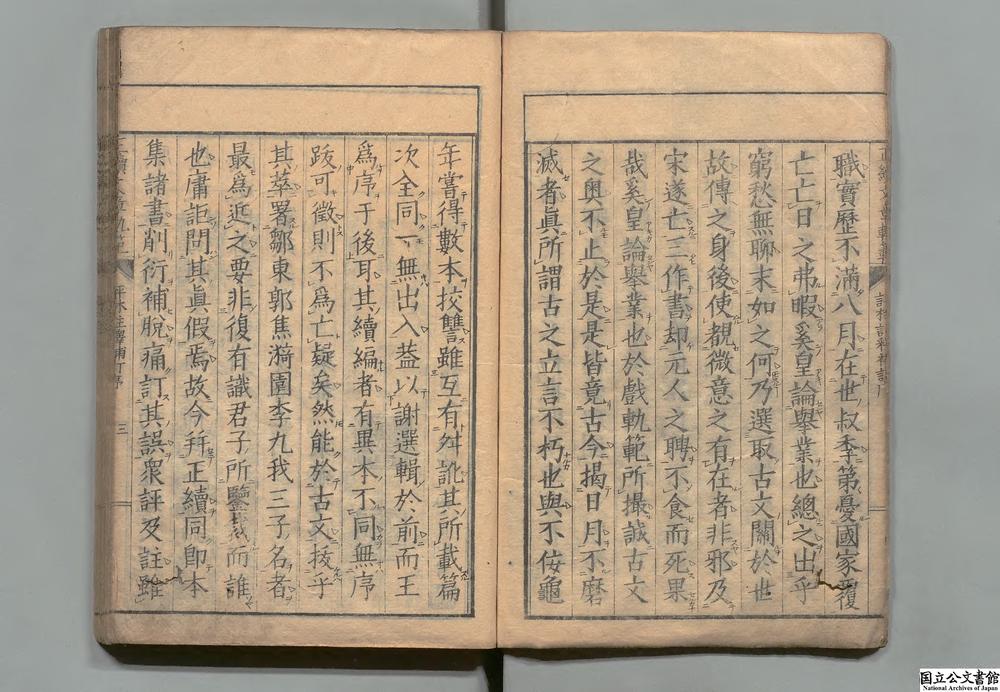 職實歷不滿八月在世叔季第憂國家覆
亡亡日之弗暇奚皇論舉業也總之出乎
窮愁無聊末如之何乃選取古文關於世
故傳之身後使覩微意之有在者非邪及
宋遂亡三作書却元人之聘不食而死果
哉奚皇論舉業也於戲軌範所撮誠古文
之奥不止於是是皆竟古今揭日月不磨
滅者眞所謂古之立言不朽也與不佞龜
年嘗得數本挍讐雖互有舛訛其所載篇
次全同一無出入葢以謝選輯於前而王
爲序于後耳其續編者有異本不同無序
跋可徵則不爲亡疑矣然能於古文拔乎
其萃署鄒東郭焦漪園李九我三子名者
最爲近之要非復有識君子所鑒裁而誰
也庸詎問其眞假焉故今幷正續同卽本
集諸書削衍補脫痛訂其誤衆評及註雖
三
国立公文書館
National Archives of Japan